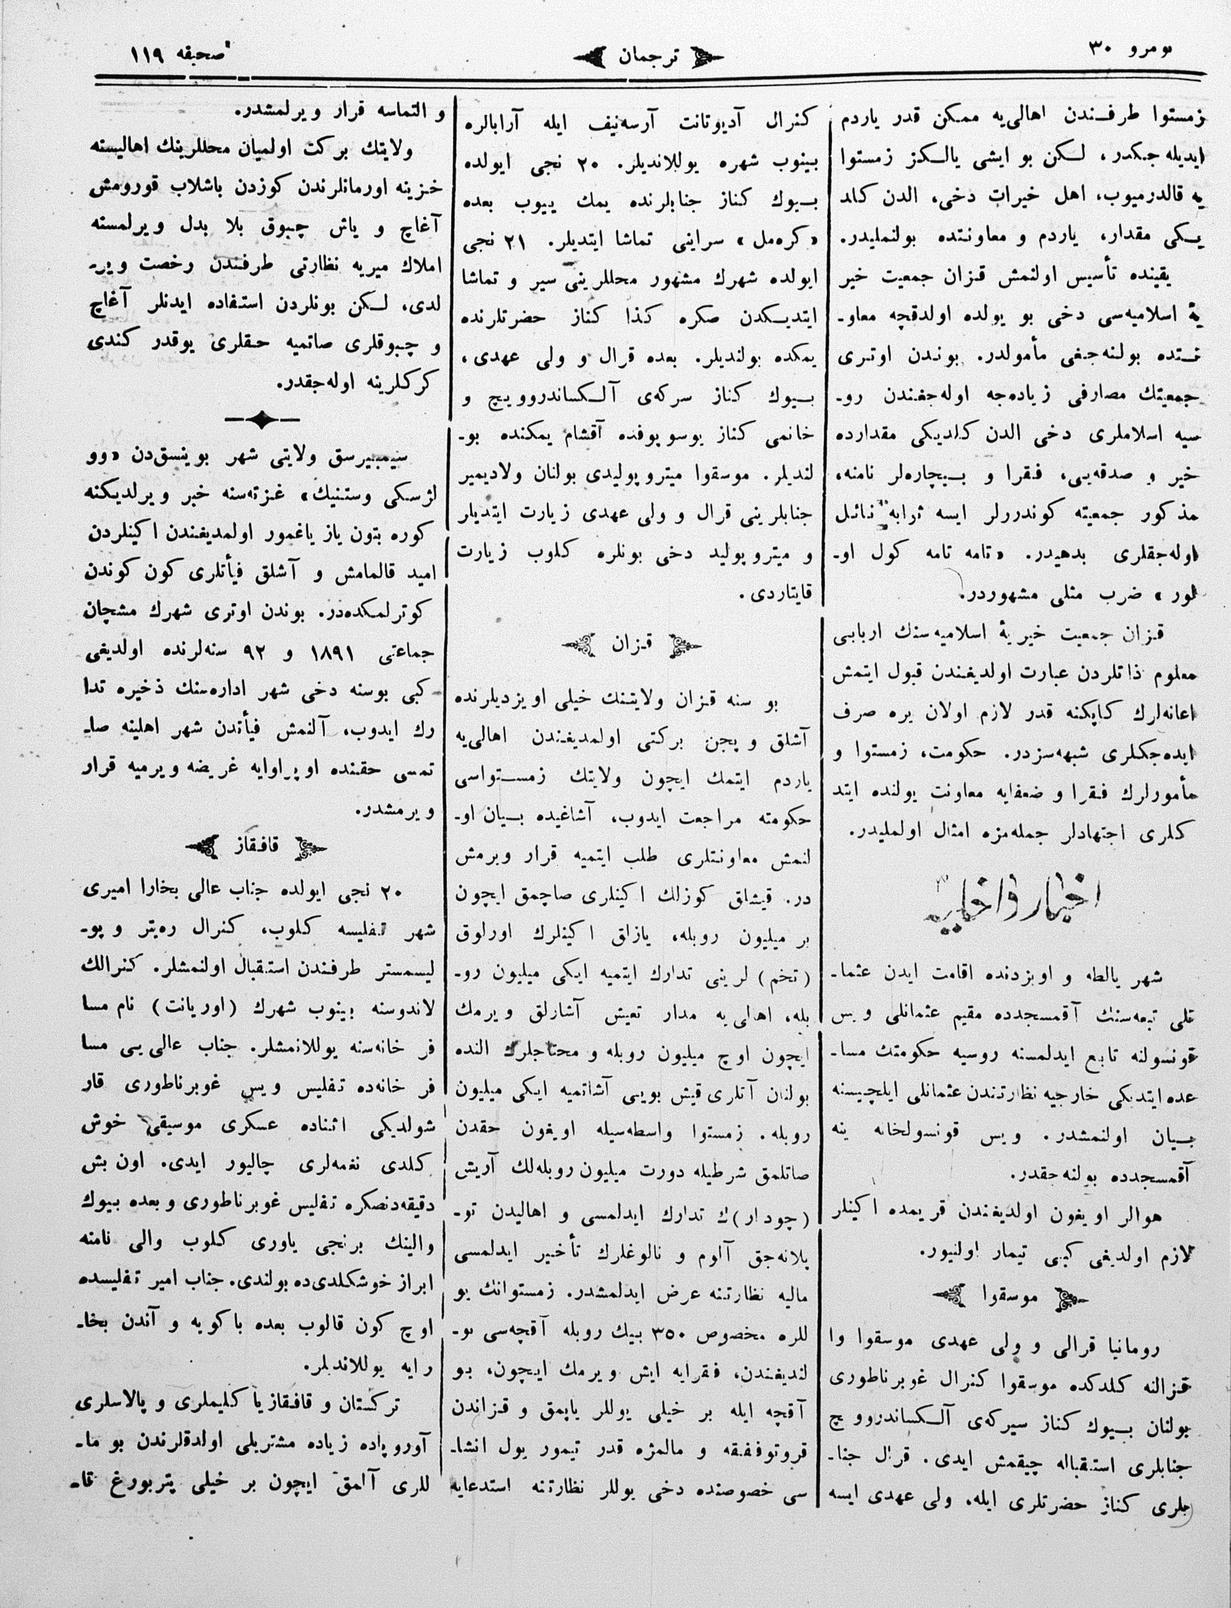 نومرو ٣٠
ترجمان
صحیفه ١١٩
زمستوا طرفندن اهالی‌یه ممکن قدر یاردم
ایدیله جکدر، لکن بو ایشی یالکز زمستوا
یه قالدرمیوب، اهل خیرات دخی، الدن کلد
یکی مقدار، یاردم و معاونتده بولنملیدر.
یقینده تأسیس اولنمش قزان جمعیت خیر
یهٔ اسلامیه‌سی دخی بو یولده اولدقچه معاو۔
نتده بولنه‌جغی مأمولدر. بوندن اوتری
جمعیتك مصارفی زیاده‌جه اوله‌جغندن رو۔
سیه اسلاملری دخی الدن کلدیکی مقدارده
خیر و صدقه‌یی، فقرا و بیچاره‌لر نامنه،
مذکور جمعیته کوندررلر ایسه ثرابه نائل
اوله‌جقلری بدهیدر. «تامه تامه کول او۔
لور» ضرب مثلی مشهوردر.
قزان جمعیت خیریهٔ اسلامیه‌سنك اربابی
معلوم ذاتلردن عبارت اولدیغندن قبول ایتمش
اعانه‌لرك کاپکنه قدر لازم اولان یره صرف
ایده‌جکلری شبهه‌سزدر. حکومت، زمستوا و
مأمورلرك فقرا و ضعفایه معاونت یولنده ایتد
کلری اجتهادلر جمله‌مزه امثال اولملیدر.
اخبار داخلیه
شهر یالطه و اویزدنده اقامت ایدن عثما۔
نلی تبعه‌سنك آقمسجدده مقیم عثمانلی ویس
قونسولنه تابع ایدلمسنه روسیه حکومتك مسا۔
عده ایتدیکی خارجیه نظارتندن عثمانلی ایلچیسنه
بیان اولنمشدر. ویس قونسولخانه ینه
آقمسجدده بولنه‌جقدر.
هوالر اویغون اولدیغندن قریمده اکینلر
لازم اولدیغی کبی تیمار اولنیور.
موسقوا
رومانیا قرالی و ولی عهدی موسقوا وا
قزالنه کلدکده موسقوا کنرال غوبرناطوری
بولنان بیوك کناز سیرکه‌ی آلکساندروویچ
جنابلری استقباله چیقمش ایدی. قرال جنا۔
بلری کناز حضرتلری ایله، ولی عهدی ایسه
کنرال آدیوتانت آرسه‌نیف ایله آرابالره
بینوب شهره یوللاندیلر. ٢٠ نجی ایولده
بیوك کناز جنابلرنده یمك ییوب بعده
«کره‌مل» سراینی تماشا ایتدیلر. ٢١ نجی
ایولده شهرك مشهور محللرینی سیر و تماشا
ایتدیکدن صکره کذا کناز حضرتلرنده
یمکده بولندیلر. بعده قرال و ولی عهدی،
بیوك کناز سرکه‌ی آلکساندروویچ و
خانمی کناز یوسوپوفده آقشام یمکنده بو۔
لندیلر. موسقوا میتروپولیدی بولنان ولادیمیر
جنابلرینی قرال و ولی عهدی زیارت ایتدیلر
و میتروپولید دخی بونلره کلوب زیارت
قایتاردی.
قزان
بو سنه قزان ولایتنك خیلی اویزدیلرنده
آشلق و پجن برکتی اولمدیغندن اهالی‌یه
یاردم ایتمك ایچون ولایتك زمستواسی
حکومته مراجعت ایدوب، آشاغیده بیان او۔
لنمش معاونتلری طلب ایتمیه قرار ویرمش
در. قیشلق کوزلك اکینلری صاچمق ایچون
بر میلیون روبله، یازلق اکینلرك اورلوق
(تخم) لرینی تدارك ایتمیه ایکی میلیون رو۔
بله، اهالی‌یه مدار تعیش آشارلق ویرمك
ایچون اوچ میلیون روبله و محتاجلرك النده
بولنان آتلری قیش بویی آشاتمیه ایکی میلیون
روبله. زمستوا واسطه‌سیله اویغون حقدن
صاتلمق شرطیله دورت میلیون روبله‌لك آریش
(چودار)ك تدارك ایدلمسی و اهالیدن تو۔
پلانه‌جق آلوم و نالوغلرك تأخیر ایدلمسی
مالیه نظارتنه عرض ایدلمشدر. زمستوانك یو
للره مخصوص ٣٥٠ بیك روبله آقچه‌سی بو۔
لندیغندن، فقرایه ایش ویرمك ایچون، بو
آقچه ایله بر خیلی یوللر یاپمق و قزاندن
قروتوففقه و مالمژه قدر تیمور یول انشا۔
سی خصوصنده دخی یوللر نظارتنه استدعایه
و التماسه قرار ویرلمشدر.
ولایتك برکت اولمیان محللرینك اهالیسنه
خزینه اورمانلرندن کوزدن باشلاب قورومش
آغاچ و یاش چبوق بلا بدل ویرلمسنه
املاك میریه نظارتی طرفندن رخصت ویر۔
لدی، لکن بونلردن استفاده ایدنلر آغاچ
و چبوقلری صاتمیه حقلری یوقدر کندی
کرکلرینه اوله‌جقدر.
سیمبیرسق ولایتی شهر بوینسق‌دن «وو
لژسکی وستنیك» غزته‌سنه خبر ویرلدیکنه
کوره بتون یاز یاغمور اولمدیغندن اکینلردن
امید قالمامش و آشلق فیأتلری کون کوندن
کوترلمکده‌در. بوندن اوتری شهرك مشچان
جماعتی ١٨٩١ و ٩٢ سنه‌لرنده اولدیغی
کبی بوسنه دخی شهر اداره‌سنك ذخیره تدا
رك ایدوب، آلنمش فیأتدن شهر اهلینه صا۔
تمسی حقنده اوپراوایه عریضه ویرمیه قرار
ویرمشدر.
قافقاز
٢٠ نجی ایولده جناب عالی بخارا امیری
شهر تفلیسه کلوب، کنرال ره‌یتر و پو۔
لیسمستر طرفندن استقبال اولنمشلر. کنرالك
لاندوسنه بینوب شهرك (اوریانت) نام مسا
فر خانه‌سنه یوللانمشلر. جناب عالی‌یی مسا
فر خانه‌ده تفلیس ویس غوبرناطوری قار
شولدیکی اثناده عسکری موسیقی خوش
کلدی نغمه‌لری چالیور ایدی. اون بش
دقیقه‌دنصکره تفلیس غوبرناطوری و بعده بیوك
والینك برنجی یاوری کلوب والی نامنه
ابراز خوشکلدی‌ده بولندی. جناب امیر تفلیسده
اوچ کون قالوب بعده باکویه و آندن بخا۔
رایه یوللاندیلر.
ترکستان و قافقازیا کلیملری و پالاسلری
آوروپاده زیاده مشتریلی اولدقلرندن بو ما۔
للری آلمق ایچون بر خیلی پتربورغ قا۔